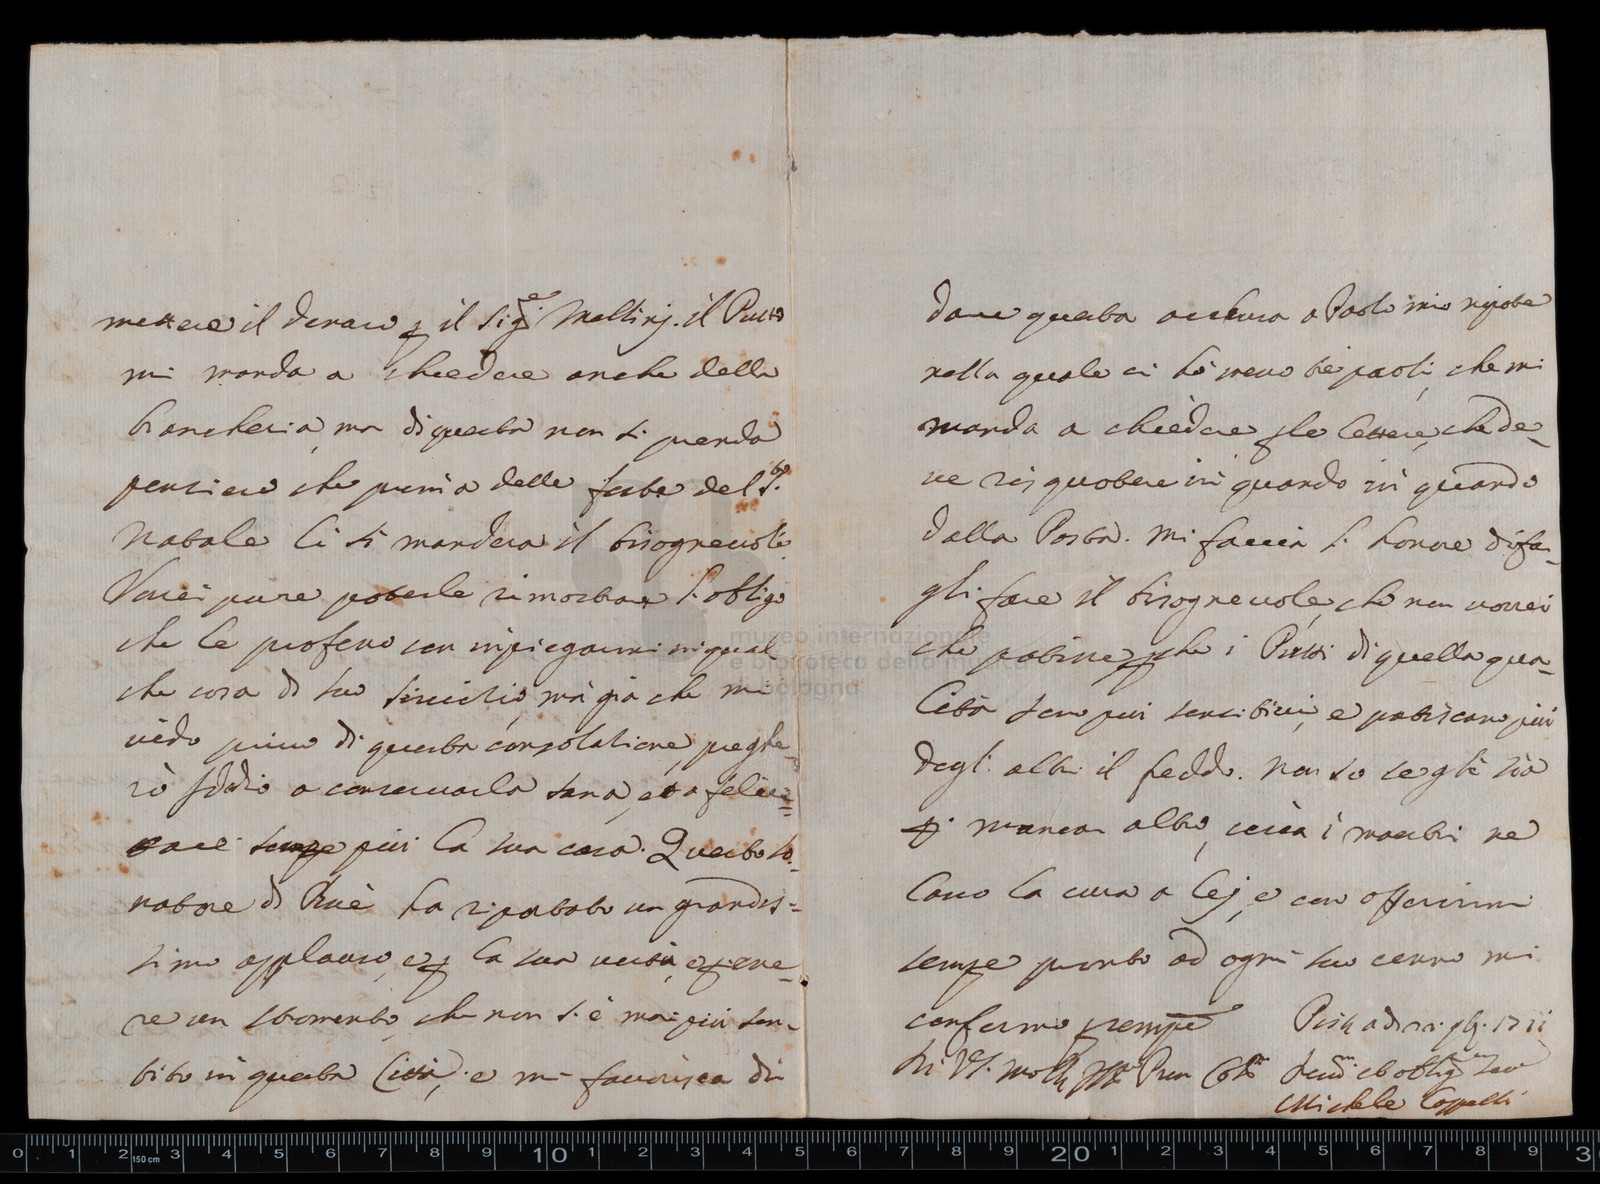 mettere il denaro p il Sig.re Mattirj. il Putto
mi manda a chiedere anche della
biancheria, ma di questa non si prenda
pensiero che prima delle feste del S.to
Natale li si manderà il bisognevole.
Vorei pure poterle rimostrare l'obligo
che le profeso con impiegarmi in qual
che cosa di suo servitio, mà già che mi
vedo privo di questa consolatione, preghe=
rò Iddio a conservarla sana, et a felici=
tare sempre più la sua casa. Questo so=
natore di hà riportato un grandis=
simo applauso, e p la sua e p
re un stromento, che non si è mai più sen=
tito in questa Città, e mi favorisca di
dare questa acclusa a Paolo mio nipote
nella quale ci hò meso trè paoli, che mi
manda a chiedere p le lettere, che de=
ve risquotere in quando in quando
dalla Posta. Mi faccia l'honore di far=
gli fare il bisognevole, che non vorrei
che patisse, p che i Putti di quella qua=
lità sono più sensibili, e patiscano più
degl'altri il freddo. Non so se gli sia
p mancar altro, ne
lascio la cura a lej, e con offerirmi
sempre pronto ad ogni suo cenno mi
confermo sempre
Di V.S. Molto Ill.re
museo internazionale
e biblioteca della musica
di bologna
150 cm